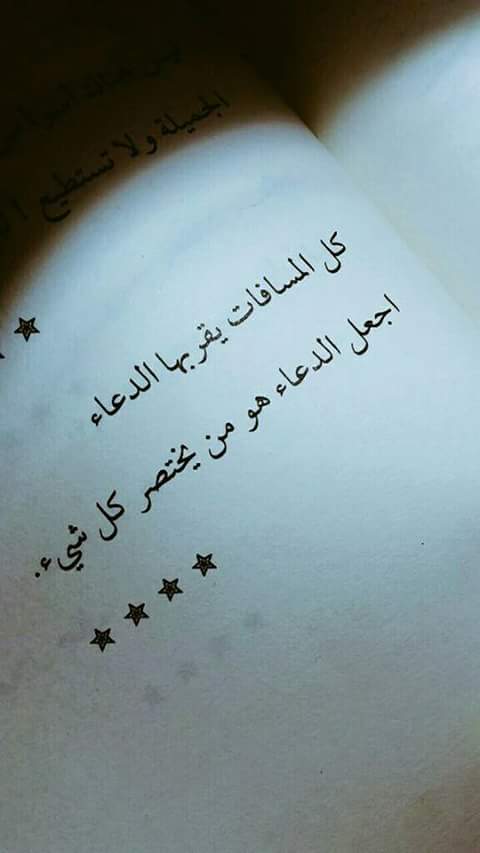 الجميلة ولا تستطيع
كل المسافات يقربها الدعاء
اجعل الدعاء هو من يختصر كل شيء.